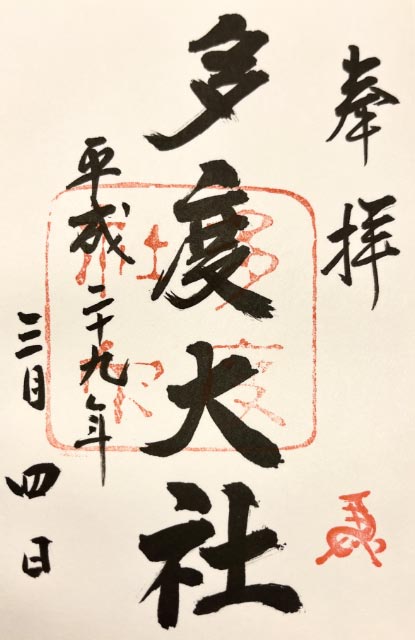 奉拝
多度大社
平成二十九年
三月四日
馬